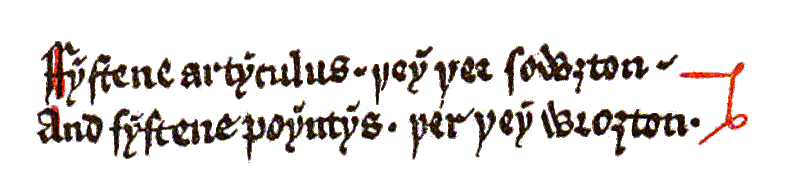 Fyftene artyculus þey þer sowȝton
And fyftene poyntys þer þey wroȝton